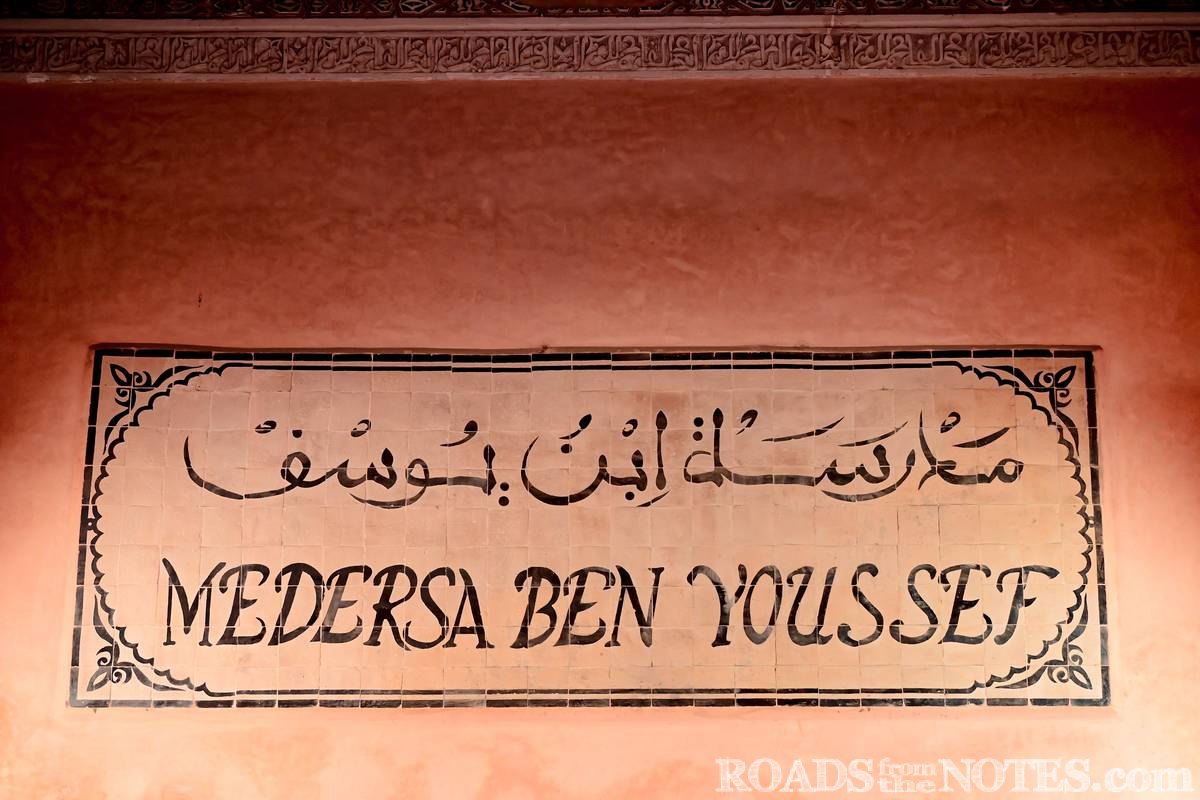 مَدْرَسَـةُ ابْنُ يُوسُفْ
MEDERSA BEN YOUSSEF
ROADS from the NOTES.com